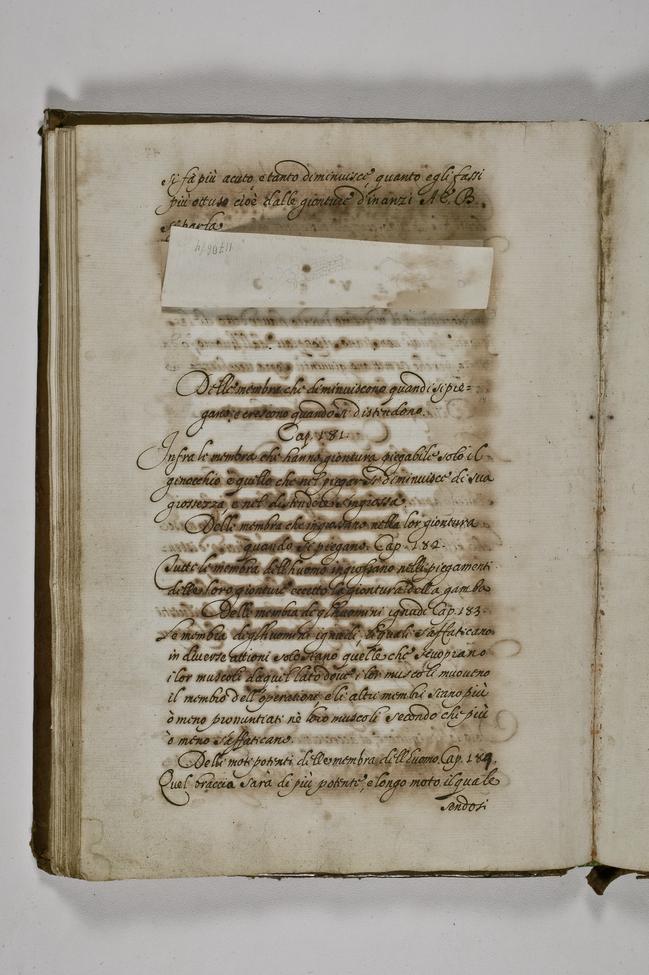 si fa più acuto, e tanto diminuisce, quanto egli fassi
più ottuso cioè dalle gionture dinanzi A C. B.
si parla
11706/4
Delle membra che diminuiscono quando si pie=
gano, e crescono quando si distendono.
Cap. 181.
Infra le membra che hanno giontura piegabile solo il
ginocchio è quello che nel piegarsi diminuisce di sua
grossezza e nel distendere ingrossa
Delle membra che ingrossano nella lor giontura
quando si piegano. Cap. 182.
Tutte le membra dell'huomo ingrossano nelli piegamenti
delle loro gionture eccetto la giontura della gamba
Delle membra de gl'huomini ignudi Cap. 183.
Le membra de gl'huomini ignudi, li quali s'affaticano
in diverse ationi solo siano quelle che scuoprano
i lor muscoli da quel lato dove i lor muscoli muoveno
il membro dell'operatione e li altri membri siano più
ò meno pronuntiati nè loro muscoli secondo che più
ò meno s'affaticano.
Delli moti potenti delle membra dell'huomo. Cap. 184.
Quel braccio sarà di più potente, e longo moto il quale
sendosi